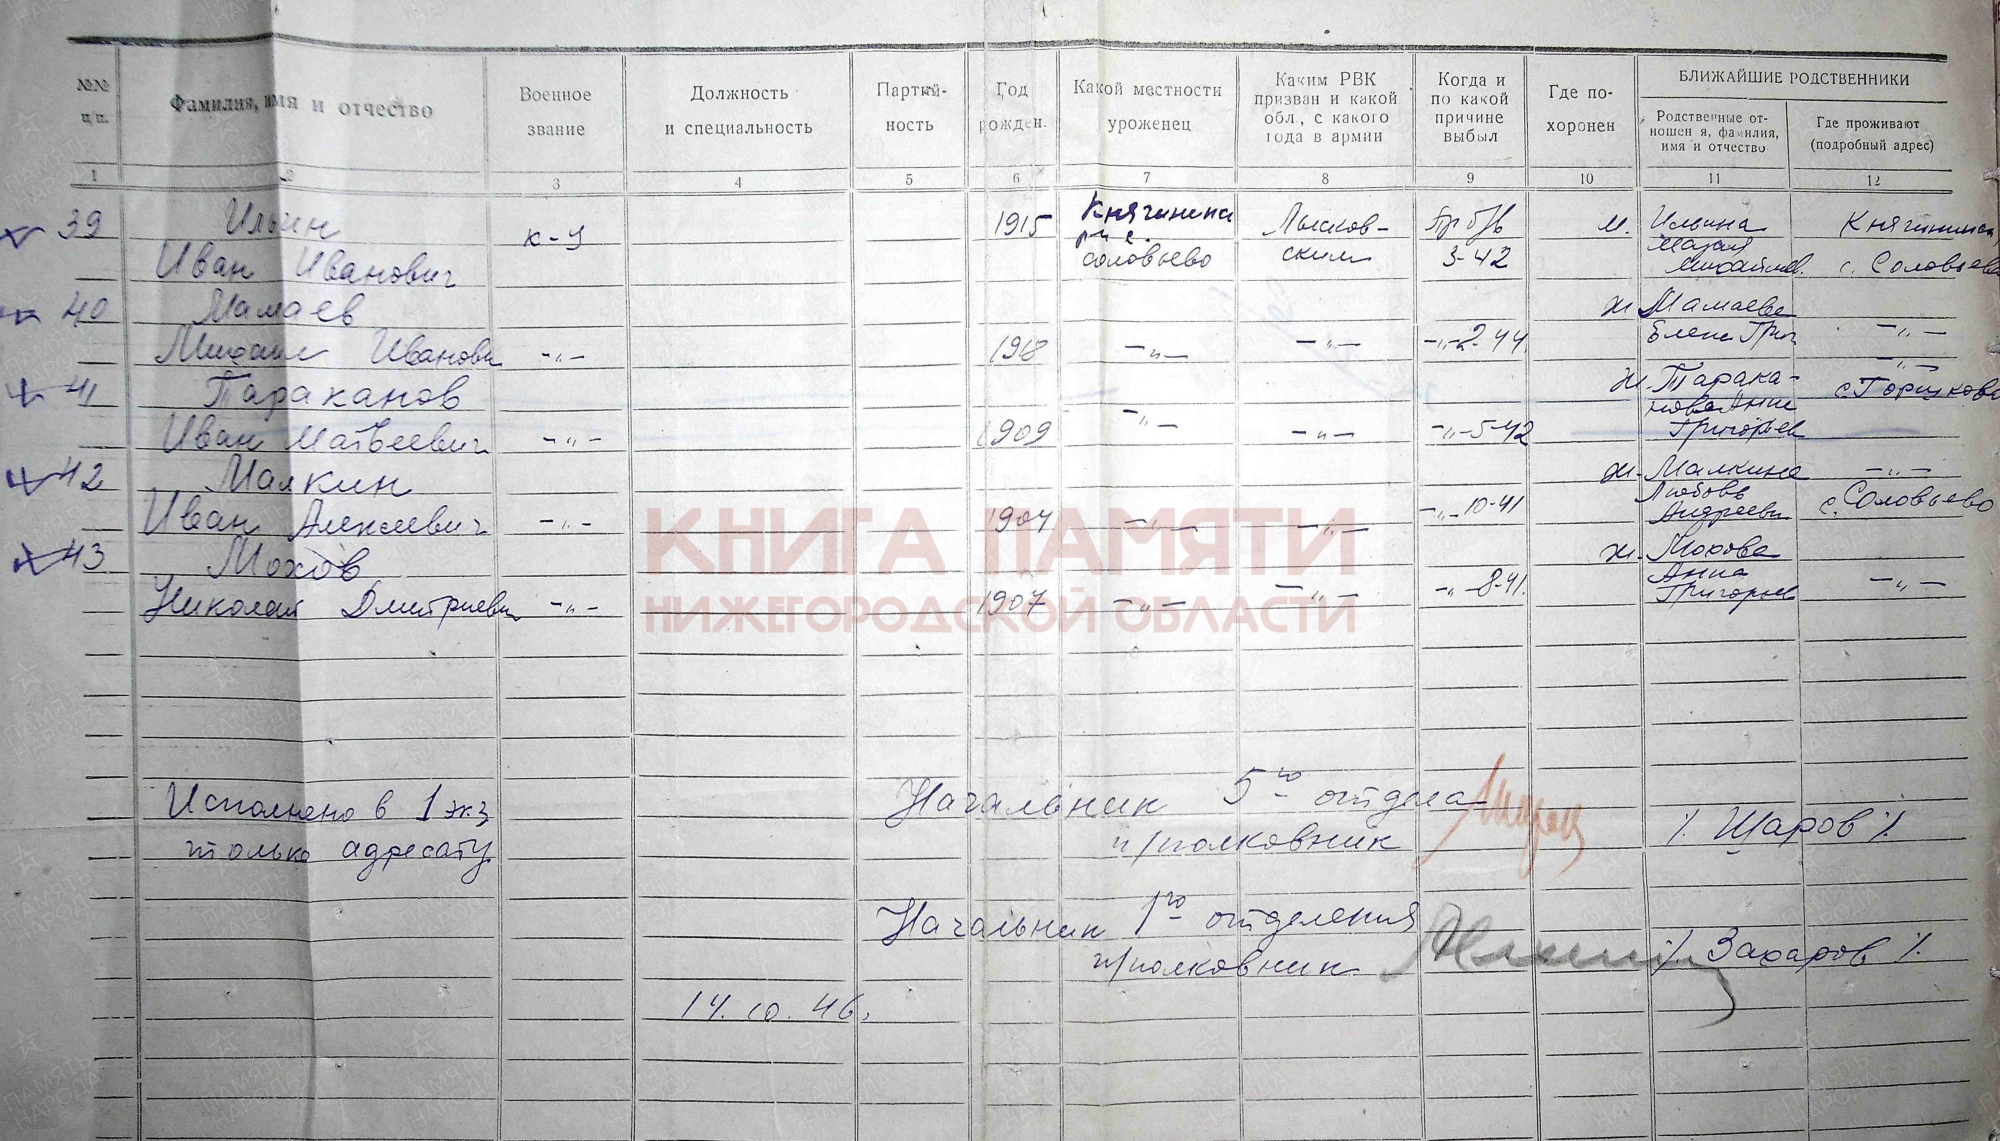 №№ п/п.
Фамилия, имя и отчество
Военное звание
Должность и специальность
Партий-ность
Год рожден.
Какой местности уроженец
Каким РВК призван и какой обл., с какого года в армии
Когда и по какой причине выбыл
Где по-хоронен
БЛИЖАЙШИЕ РОДСТВЕННИКИ
Родственные от-ношен я, фамилия, имя и отчество
Где проживают (подробный адрес)
1 2 3 4 5 6 7 8 9 10 11 12
39 Ильин к-ц 1915 Княгинина Лысков- Пр б/в м. Ильина Княгининск
Иван Иванович р-н с. Соловьево ским 3-42 Мария Михайлов. с. Соловьево
40 Мамаев ж. Мамаева
Михаил Иванови -„- 1918 -„- -„- -„- 2-44. Елена Григ -„-
41 Тараканов ж. Тарака- -„- с. Горшково
Иван Матвеевич -„- 1909 -„- -„- -„- 5-42 нова Анна Григорьев
42 Малкин ж. Малкина -„-
Иван Алексеевич -„- 1904 -„- -„- -„- 10-41 Любовь Андреевн с. Соловьево
43 Мохов ж. Мохова
Николай Дмитриевич -„- 1907 -„- -„- -„- 8-41. Анна Григорьев -„-
КНИГА ПАМЯТИ
НИЖЕГОРОДСКОЙ ОБЛАСТИ
Исполнено в 1 экз
только адресату.
Начальник 5го отдела
п/полковник /. Щаров /.
Начальник 1го отделения
п/полковник /. Захаров /.
14. 10. 46.
ПАМЯТЬ НАРОДА